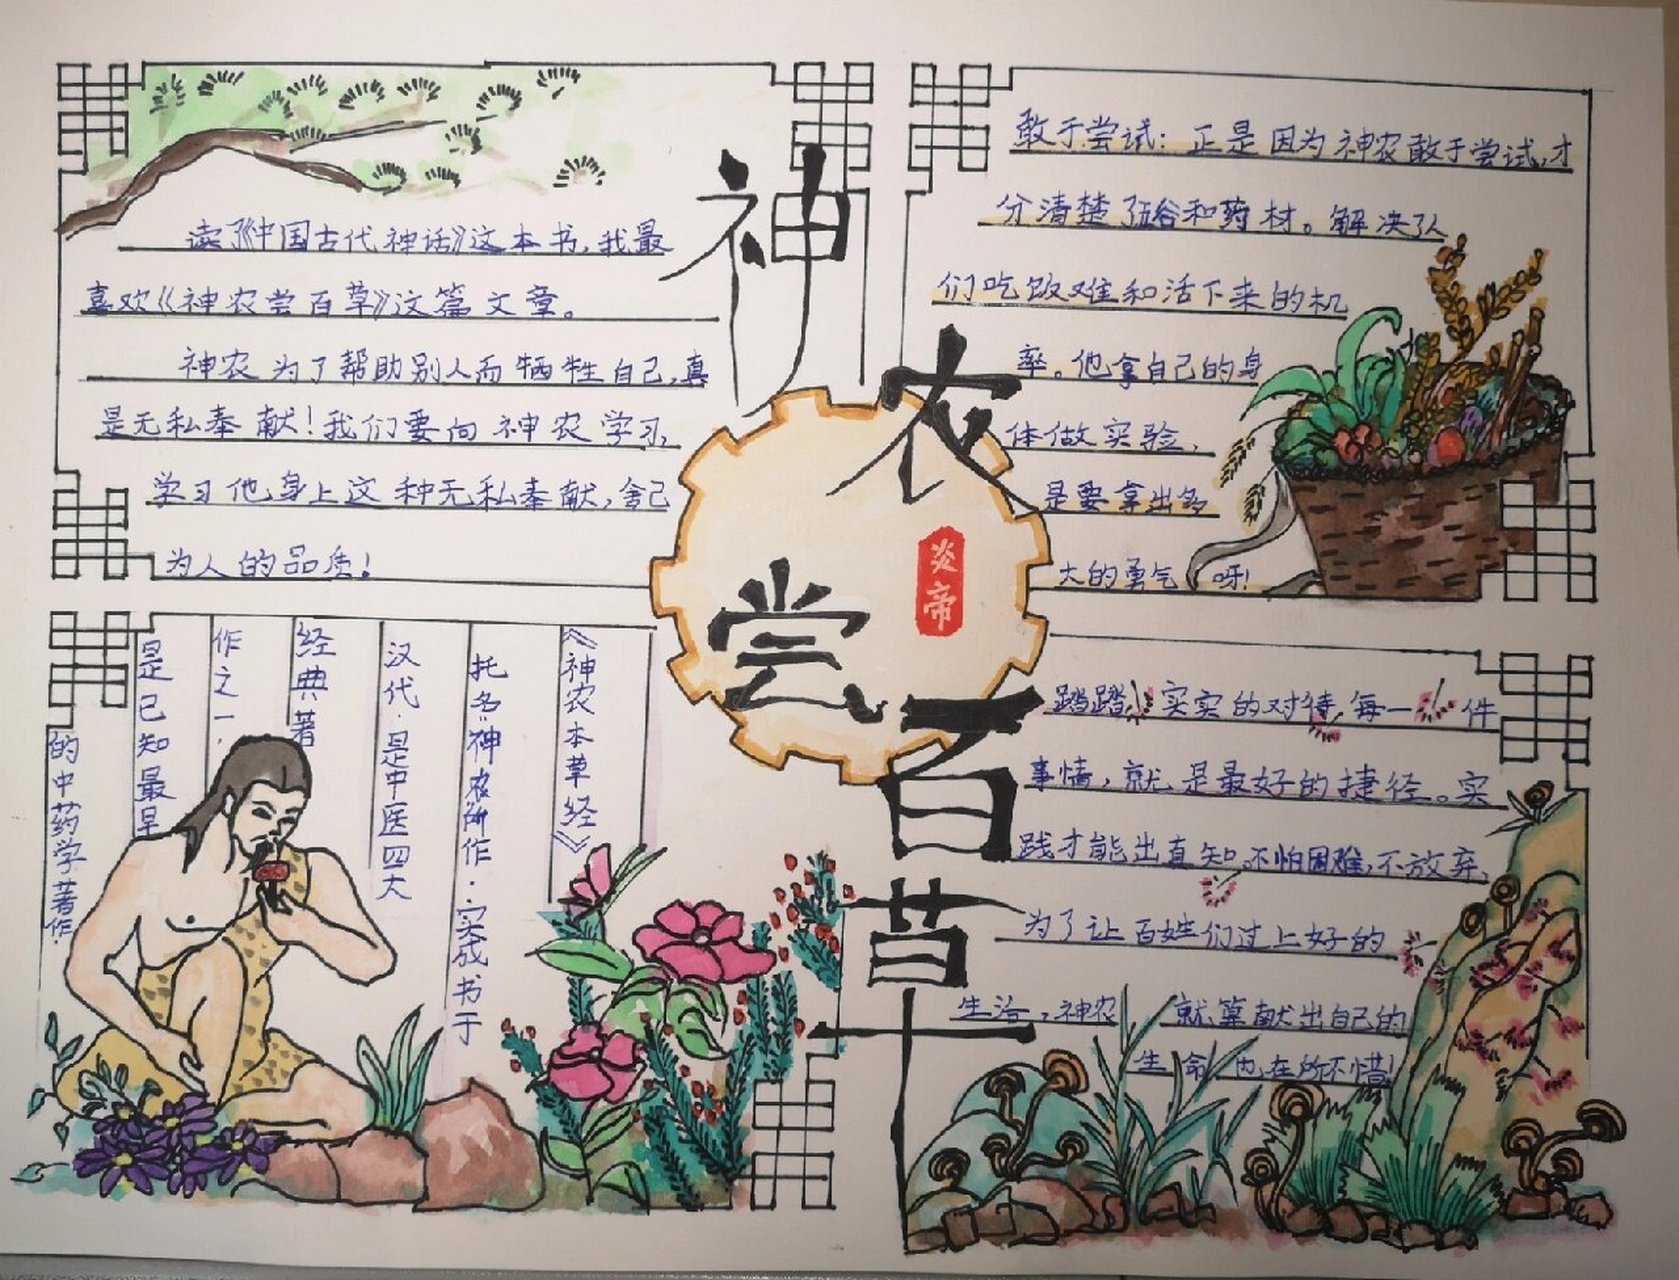 神农尝百草
炎帝
读了《中国古代神话》这本书，我最
喜欢《神农尝百草》这篇文章。
神农为了帮助别人而牺牲自己，真
是无私奉献！我们要向神农学习，
学习他身上这种无私奉献，舍己
为人的品质！
敢于尝试：正是因为神农敢于尝试，才
分清楚了五谷和药材。解决了人
们吃饭难和活下来的机
率。他拿自己的身
体做实验，
是要拿出多
大的勇气呀！
《神农本草经》
托名"神农所作.实成书于
汉代.是中医四大
经典著
作之一.
是已知最早
的中药学著作.
踏踏实实的对待每一件
事情，就是最好的捷径。实
践才能出真知，不怕困难，不放弃，
为了让百姓们过上好的
生活，神农就算献出自己的
生命也在所不惜！